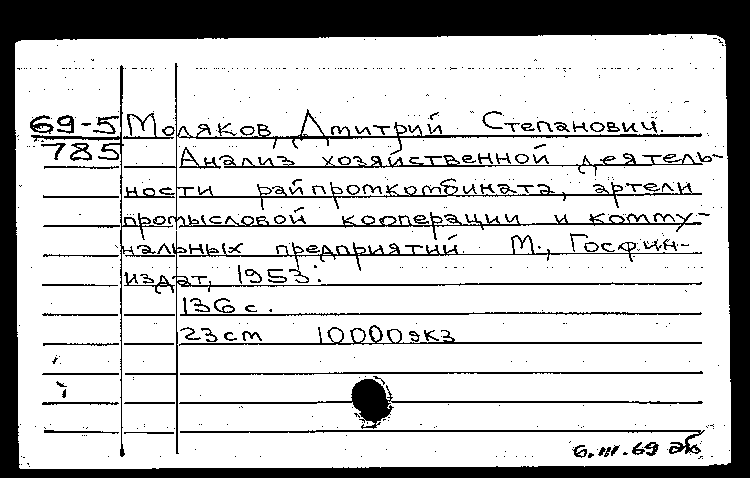 69-5 Моляков, Дмитрий Степанович.
785 Анализ хозяйственной деятель-
ности райпромкомбината, артели
промысловой кооперации и комму-
нальных предприятий. М., Госфин-
издат, 1953.
136 с.
23 см 10000 экз
6.III.69